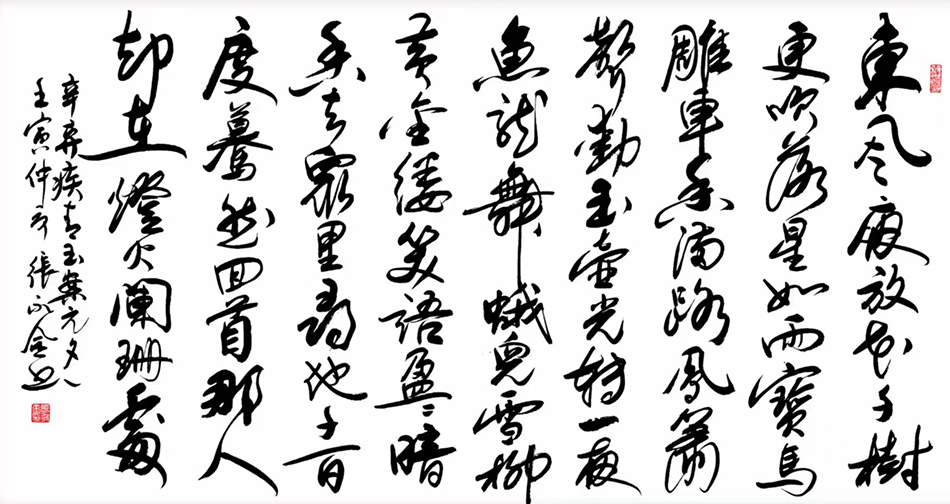 東风夜放花千樹
更吹落星如雨寶馬
雕車香滿路鳳簫
聲動玉壺光轉一夜
魚龍舞蛾兒雪柳
黄金縷笑語盈々暗
香去衆里尋他千百
度驀然回首那人
却在燈火闌珊處
辛弃疾青玉案元夕
壬寅仲 張